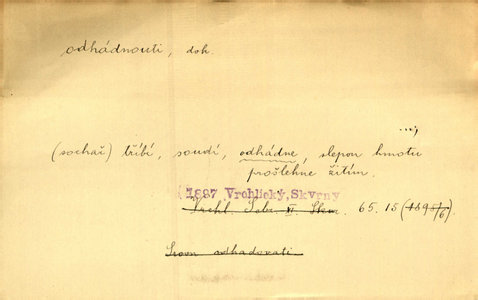 odhádnouti, dok.
...,
(sochař) tříbí, soudí, odhádne, slepou hmotu
prošlehne žitím.
1897 Vrchlický, Skvrny
Vrchl. Sebr. VI. Skvr. 65.15 (1895/6).
Srovn. odhadovati